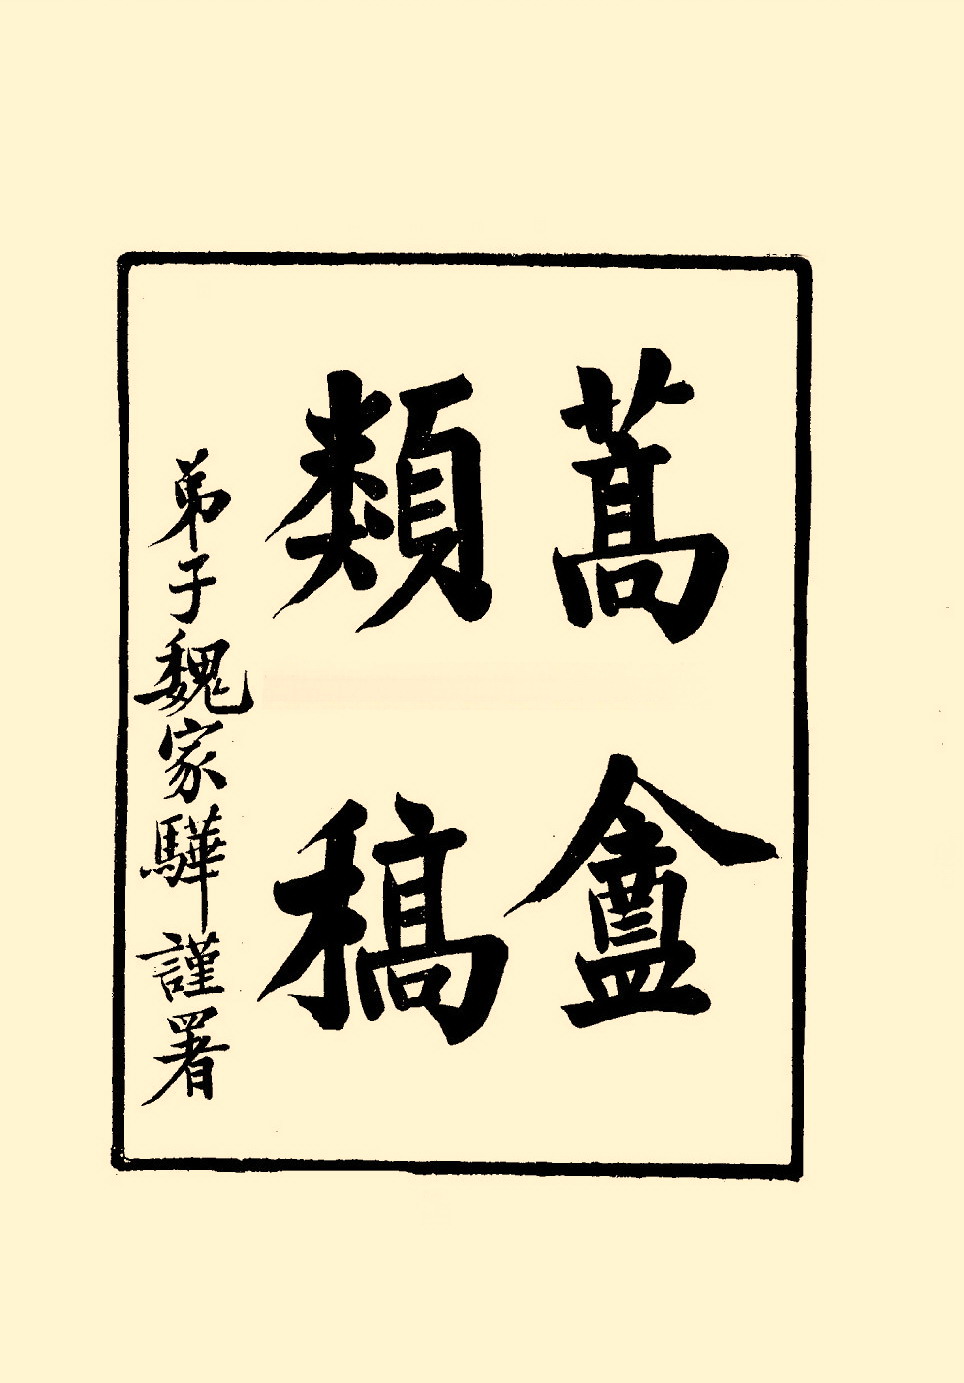 蒿盦
類稿
弟子魏家驊謹署